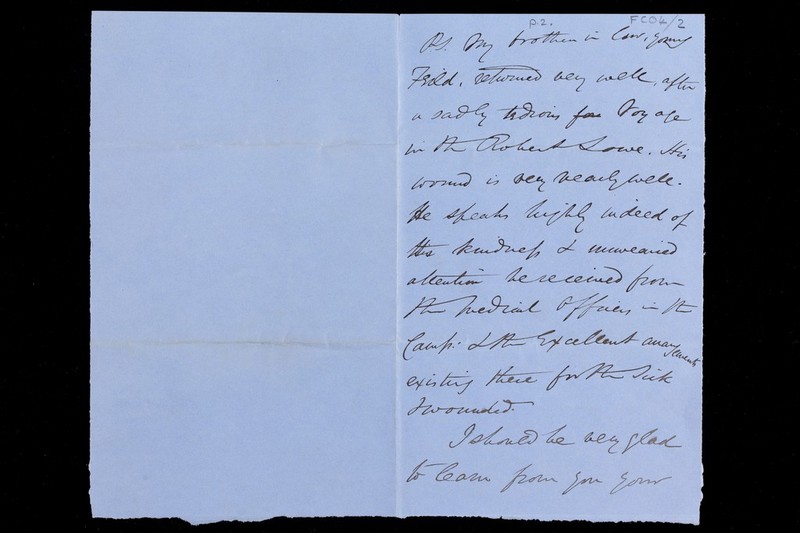 p.2.
FCO4/2
P.S. My brother in law, young
Feild, returned very well, after
a sadly tedious for Voyage
in the Robert Lowe. His
wound is very nearly well.
He speaks highly indeed of
the kindness & unwearied
attention he received from
the Medical Officers in the
Camp: & the Excellent arrangements
existing there for the Sick
& wounded.
I should be very glad
to learn from you your